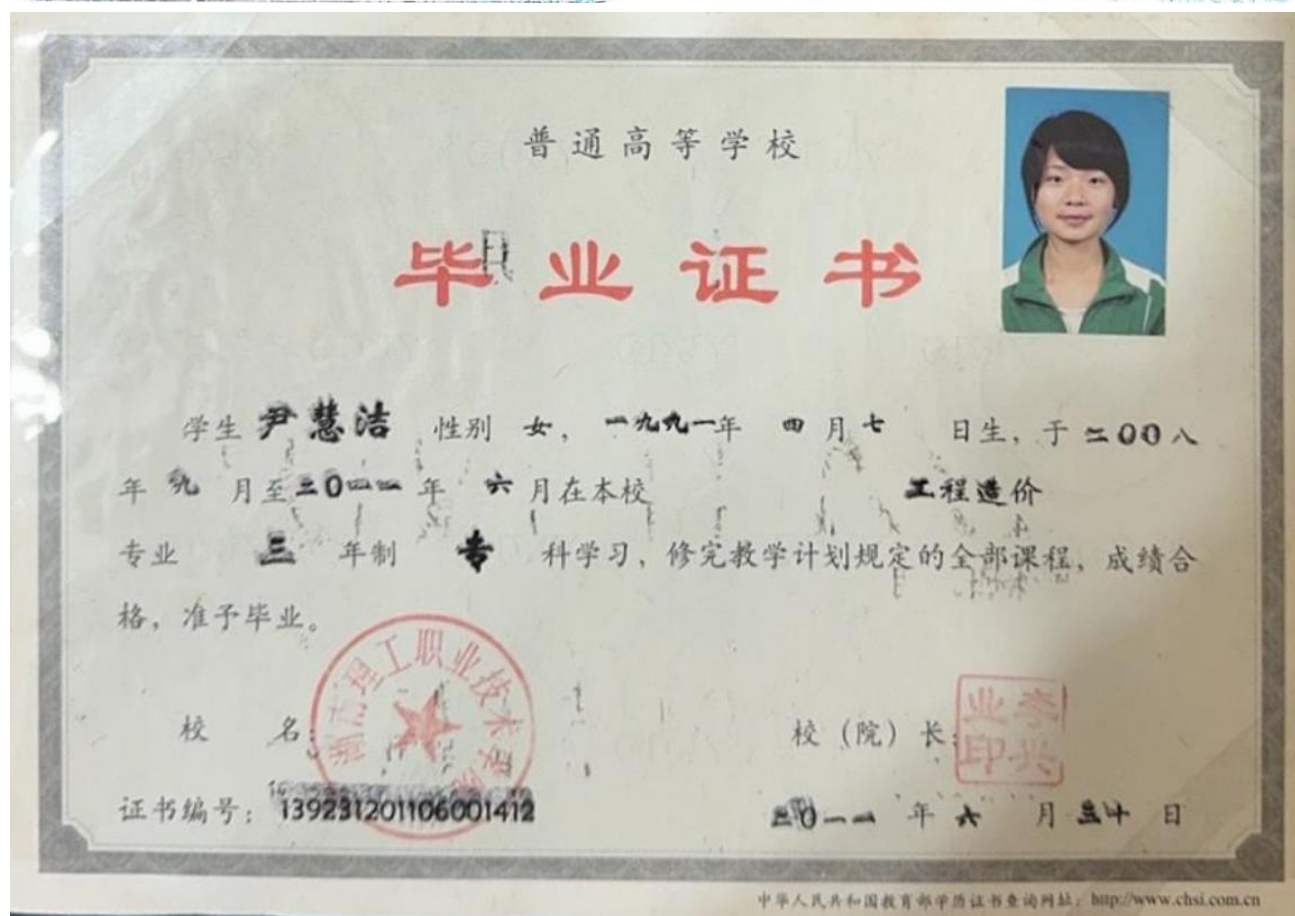 普通高等学校
毕业证书
学生 尹慧洁 性别 女，一九九一年 四月七 日生，于二00八
年 九 月至二0一一年 六月在本校 工程造价
专业 三 年制 专 科学习，修完教学计划规定的全部课程，成绩合
格，准予毕业。
理工职业技术学院
校 名：
校（院）长：
李兴业印
证书编号：139231201106001412
二0一一 年 六 月 三十 日
中华人民共和国教育部学历证书查询网址：http://www.chsi.com.cn